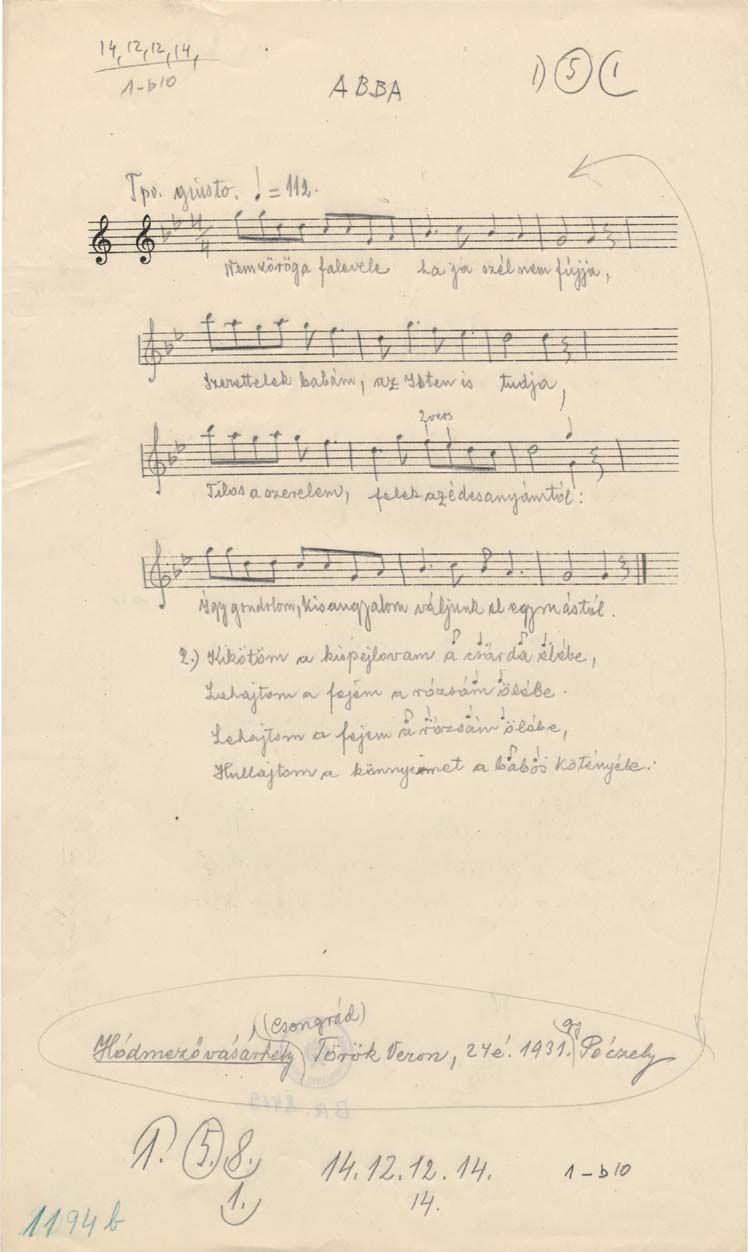 14, 12, 12, 14,
1-b10
ABBA
1) 5 1
Tpo. giusto. ♩=112.
4/4
Nem zörög a falevele ha ja szél nem fújja,
Szerettelek babám, az Isten is tudja,
2 vers
Tilos a szerelem, felek az édesanyámtól:
Úgy gondolom, kisangyalom váljunk el egymástól.
2.) Kikötöm a kispejlovam a csárda elébe,
Lehajtom a fejem a rózsám ölébe.
Lehajtom a fejem a rózsám ölébe,
Hullajtom a könnyeimet a babos kötényébe.
(Csongrád)
Hódmezővásárhely Török Veron, 24é. 1931. gy Péczely
1. 5. 8.
1.
14.12.12.14.
14.
1-b10
1194b